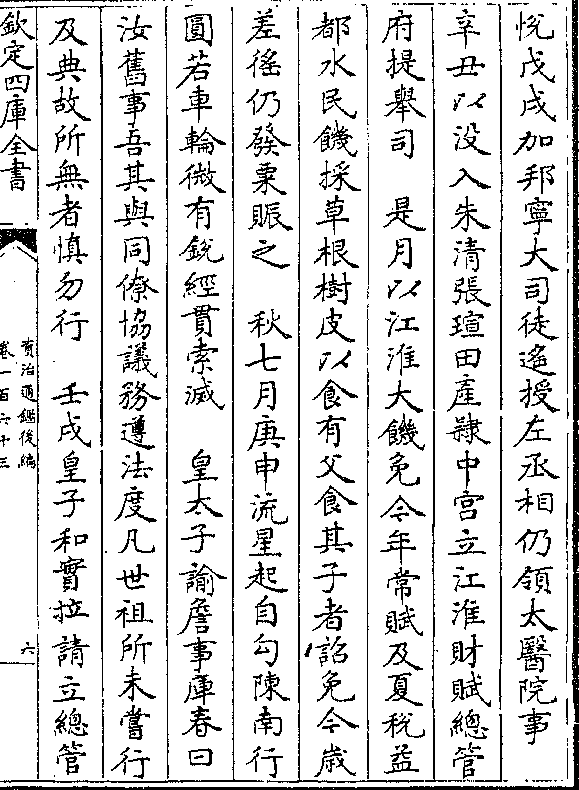 悅戊戌加邦寧大司徒遙授左丞相仍領太醫院事
辛丑以没入朱清張瑄田產隸中宫立江淮財賦總管
府提舉司　是月以江淮大饑免今年常賦及夏税益
都水民饑採草根樹皮以食有父食其子者詔免今歳
差徭仍發粟賑之　秋七月庚申流星起自勾陳南行
圓若車輪微有鋭經貫索滅　皇太子諭詹事庫春曰
汝舊事吾其與同僚協議務遵法度凡世祖所未嘗行
及典故所無者慎勿行　壬戌皇子和實拉請立總管
欽定四庫全書
資治通鑑後編
卷一百六十三
六